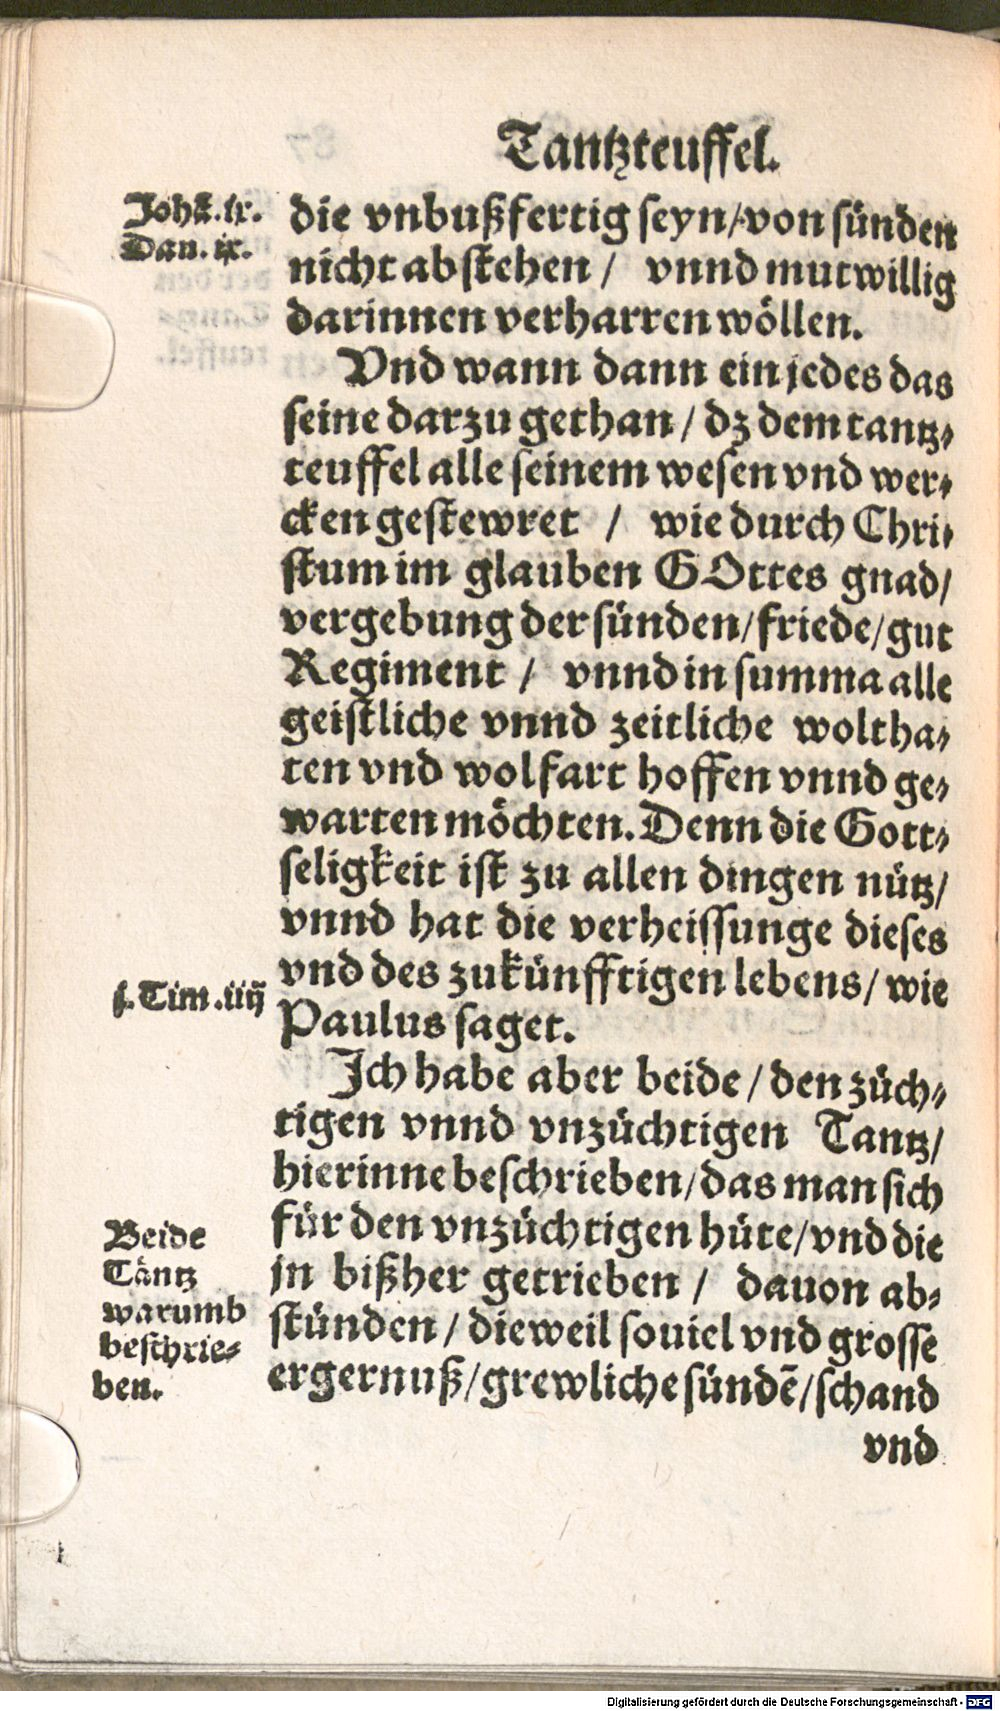 Tantzteuffel.
Johā. ix.
Dan. ix.
die vnbußfertig seyn/ von sünden
nicht abstehen / vnnd mutwillig
darinnen verharren wöllen.
Vnd wann dann ein jedes das
seine darzu gethan / dz dem tantz-
teuffel alle seinem wesen vnd wer-
cken gestewret / wie durch Chri-
stum im glauben GOttes gnad/
vergebung der sünden/ friede/ gut
Regiment / vnnd in summa alle
geistliche vnnd zeitliche woltha-
ten vnd wolfart hoffen vnnd ge-
warten möchten. Denn die Gott-
seligkeit ist zu allen dingen nütz/
vnnd hat die verheissunge dieses
vnd des zukünfftigen lebens/ wie
j. Tim. iiij
Paulus saget.
Ich habe aber beide / den züch-
tigen vnnd vnzüchtigen Tantz/
hierinne beschrieben/ das man sich
für den vnzüchtigen hüte/ vnd die
jn bißher getrieben / dauon ab-
stünden / dieweil souiel vnd grosse
ergernuß/ grewliche sündē/ schand
Beide
Täntz
warumb
beschrie-
ben.
vnd
Digitalisierung gefördert durch die Deutsche Forschungsgemeinschaft - DFG